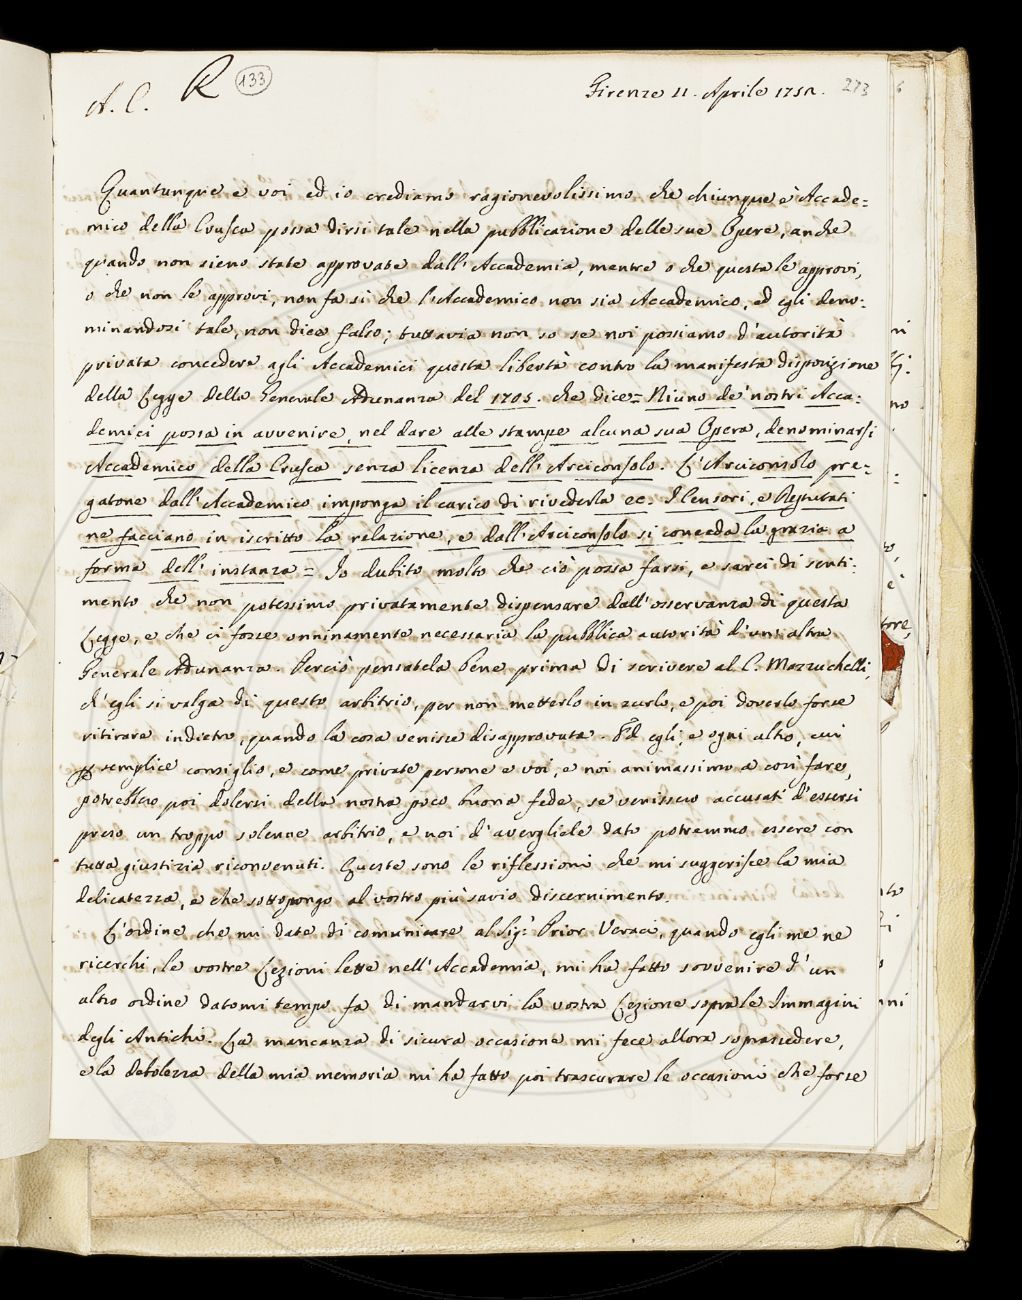 A. C. R 133 Firenze 11. Aprile 1752. 273
Quantunque e voi ed io crediamo ragionevolissimo che chiunque è Accade=
mico della Crusca possa dirsi tale nella pubblicazione delle sue Opere, anche
quando non sieno state approvate dall' Accademia, mentre o che questa le approvi,
o che non le approvi, non fa sì che l'Accademico non sia Accademico, ed egli deno=
minandosi tale, non dice falso; tuttavia non so se noi possiamo d'autorità
privata concedere agli Accademici questa libertà contro la manifesta disposizione
della Legge della Generale Adunanza del 1705. che dice= Niuno de' nostri Acca=
demici possa in avvenire, nel dare alle stampe alcuna sua Opera, denominarsi
Accademico della Crusca senza licenza dell' Arciconsolo. L'Arciconsolo pre=
gatone dall' Accademico imponga il carico di rivederla ec. I Censori, e Deputati
ne facciano in iscritto la relazione, e dall' Arciconsolo si conceda la grazia a
forma dell' instanza = Io dubito molto che ciò possa farsi, e sarei di senti=
mento che non potessimo privatamente dispensare dall' osservanza di questa
Legge, e che ci fosse onninamente necessaria la pubblica autorità d'un' altra
Generale Adunanza. Perciò pensatela bene prima di scrivere al C. Mazzuchelli,
ch'egli si valga di questo arbitrio, per non metterlo in zurlo, e poi doverlo forse
ritirare indietro, quando la cosa venisse disapprovata. Ed egli, e ogni altro, cui
semplice consiglio, e come private persone e voi, e noi animassimo a così fare,
potrebbero poi dolersi della nostra poco buona fede, se venissero accusati d'essersi
preso un troppo solenne arbitrio, e noi d'avergliele dato potremmo essere con
tutta giustizia riconvenuti. Queste sono le riflessioni che mi suggerisce la mia
delicatezza, e che sottopongo al vostro più savio discernimento.
L'ordine che mi date di comunicare al Sig: Prior Veraci, quando egli me ne
ricerchi, le vostre Lezioni lette nell' Accademia, mi ha fatto sovvenire d'un
altro ordine datomi tempo fa di mandarvi la vostra Lezione sopra le Immagini
degli Antichi. La mancanza di sicura occasione mi fece allora soprassedere,
e la debolezza della mia memoria mi ha fatto poi trascurare le occasioni che forse